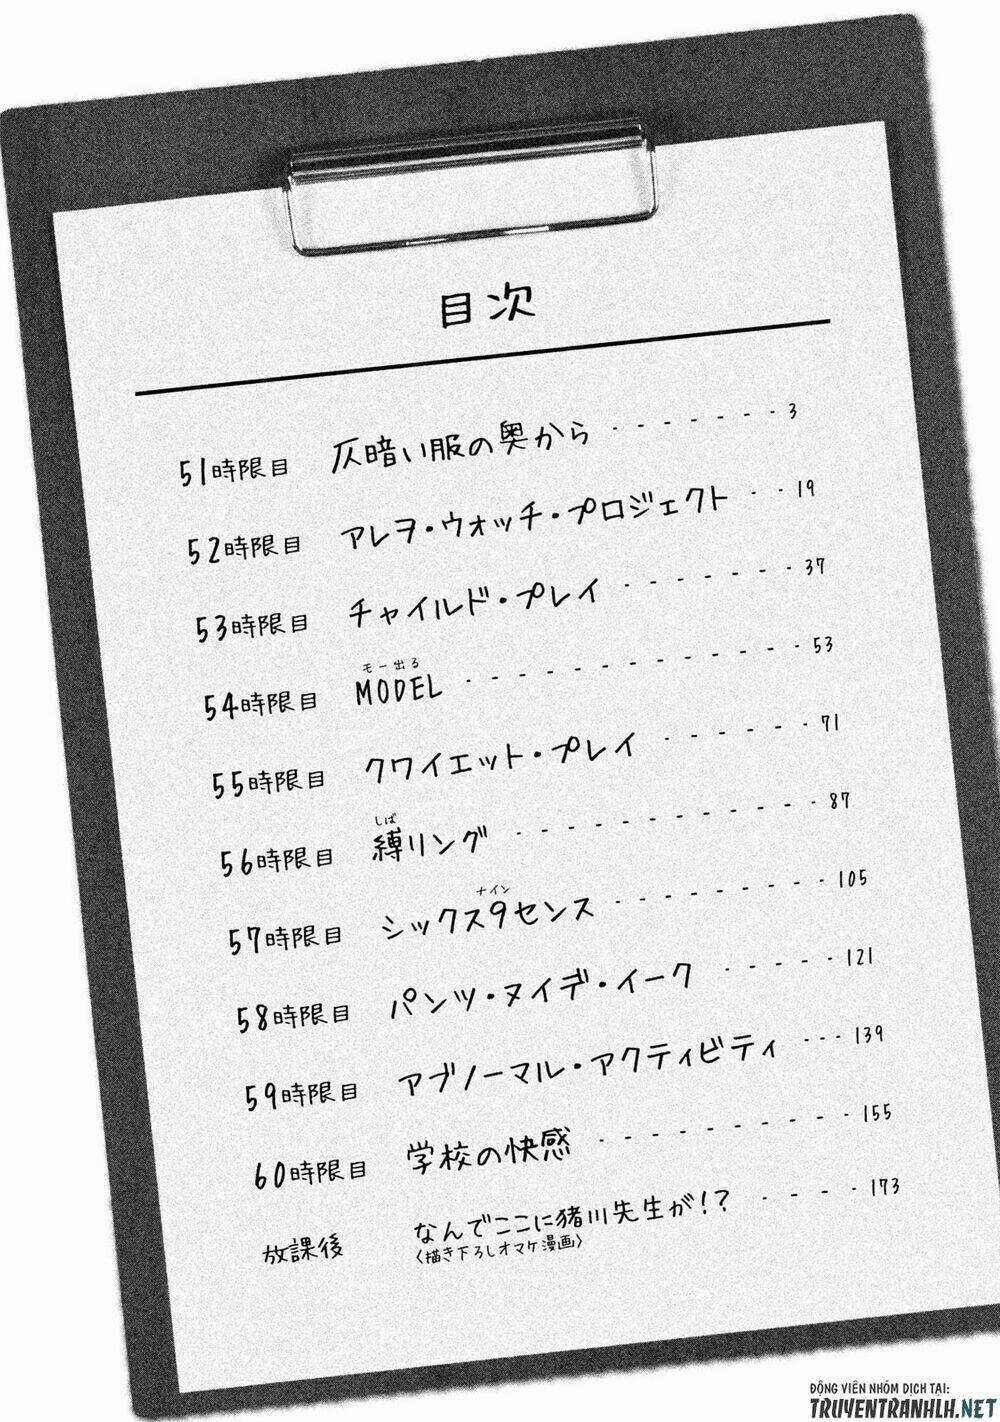 目次
51時限目 仄暗い服の奥から - - - - - - - 3
52時限目 アレヲ・ウォッチ・プロジェクト - - 19
53時限目 チャイルド・プレイ - - - - - - - 37
モー出る
54時限目 MODEL - - - - - - - - - - - - 53
55時限目 クワイエット・プレイ - - - - - - 71
しば
56時限目 縛リング - - - - - - - - - - - - 87
ナイン
57時限目 シックス9センス - - - - - - - - - 105
58時限目 パンツ・ヌイデ・イーク - - - - - 121
59時限目 アブノーマル・アクティビティ - - - 139
60時限目 学校の快感 - - - - - - - - - - 155
放課後 なんでここに猪川先生が!? - - - - 173
〈描き下ろしオマケ漫画〉
ĐỘNG VIÊN NHÓM DỊCH TẠI:
TRUYENTRANHLH.NET